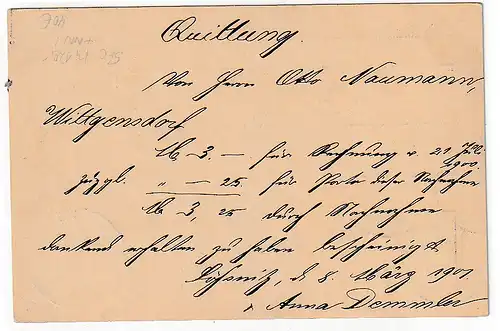 Quittung.
Von Herrn Otto Naumann,
Wittgensdorf
M 3. — für Rechnung v. 21. Juli
1900.
zuzgl. " — 25. für Porto dieser Nachnahme
M 3, 25 durch Nachnahme
dankend erhalten zu haben bescheinigt
Lößnitz, d. 8. März 1901
Anna Demmler